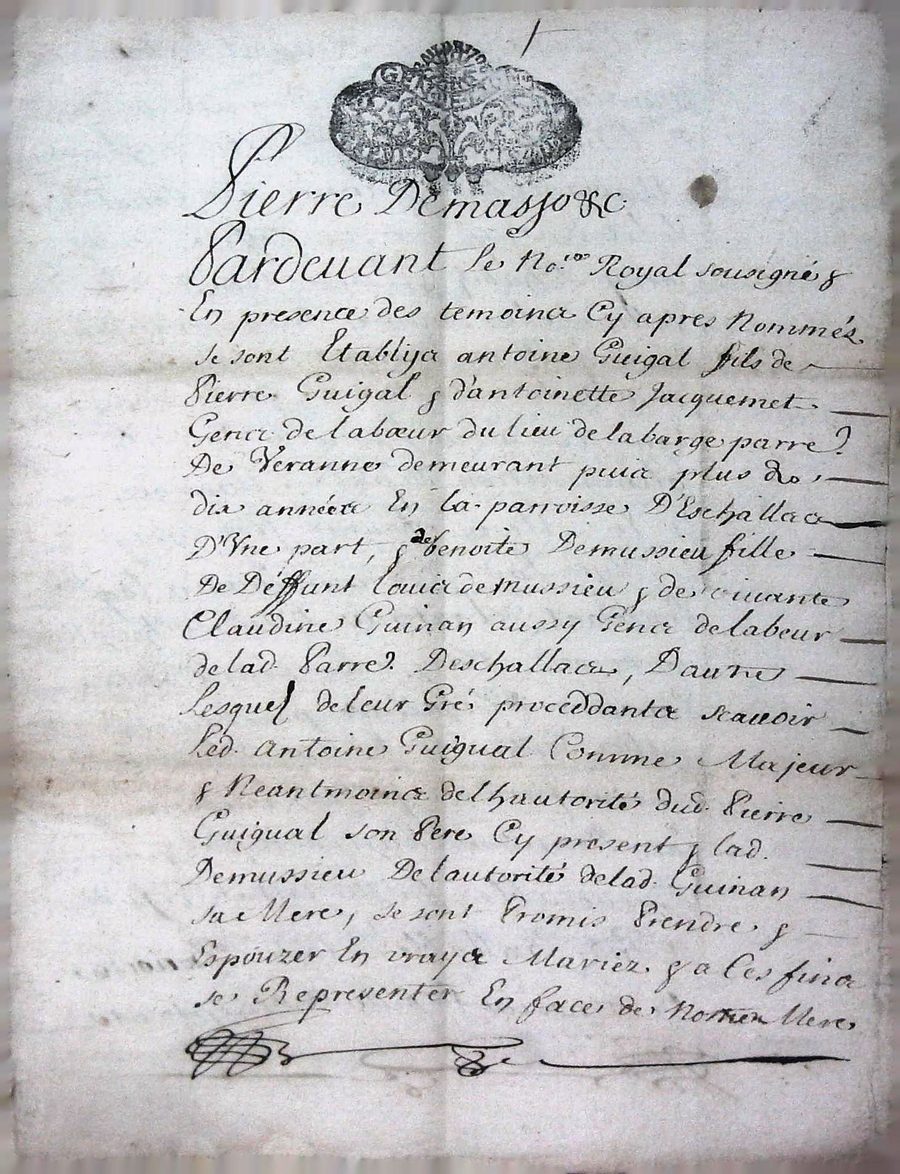 GEN
Pierre Demasso &c
Pardevant Le No.re Royal sousigné &
En presence des temoins Cy apres Nommés
se sont Etablys antoine Guigal fils de
Pierre Guigal & d'antoinette Jacquemet
Gens de labœur du lieu de labarge parre.
De Veranne demeurant puis plus de
dix années En la parroisse D'Eschallas
D'Vne part, & de benoite Demussieu fille
De Déffunt Louis demussieu & de vivante
Claudine Guinan aussy Gens delabeur
delad. Parre. Deschallas, Dautre
Lesquel deleur Gré proceddants scauoir
Led. Antoine Guigual Comme Majeur
& Neantmoins delhautorité dud. Pierre
Guigual son Pere Cy present & lad.
Demussieu Delautorité delad. Guinan
sa Mere, se sont Promis Prendre &
Espouzer En vrays Mariez & a Ces fins
se Representer En face de Mere